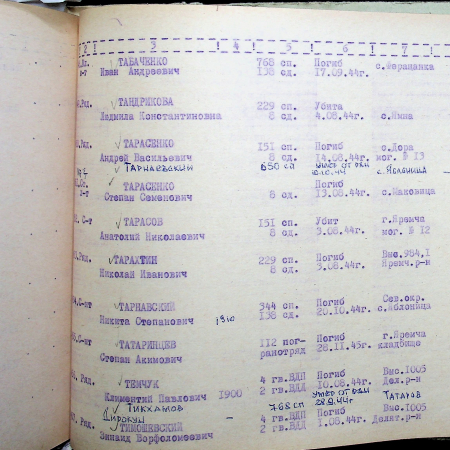 2 ! 3 ! 4 ! 5 ! 6 ! 7 !
ТАБАЧЕНКО 768 сп. Погиб с.Форещанка
Иван Андреевич 138 сд. 17.09.44г.
Ряд. ТАНДРИКОВА 229 сп. Убита
Людмила Константиновна 8 сд. 4.08.44г.
Ряд. ТАРАСЕНКО 151 сп. Погиб с.Дора
Андрей Васильевич 8 сд. 14.08.44г. мог. № 13
Тарнаевский 650 сп с. Яблоница
ТАРАСЕНКО Погиб
Степан Семенович 8 сд. 13.08.44г. с.Маковица
С-т ТАРАСОВ 151 сп. Убит г.Яремча
Анатолий Николаевич 8 сд. 3.08.44г. мог. № 12
Ряд. ТАРАХТИН 229 сп. Погиб Выс.984,1
Николай Иванович 8 сд. 3.08.44г. Яремч.р-н
ТАРНАВСКИЙ 344 сп. Погиб Сев.окр.
Никита Степанович 1910 138 сд. 20.10.44г. с.Яблоница
С-нт ТАТАРИНЦЕВ 112 пог- Погиб г.Яремча
Степан Акимович ранотряд 28.11.45г. кладбище
Ряд. ТЕМЧУК 4 гв.ВДП Погиб Выс.1005
Климентий Павлович 1900 2 гв.ВДД 10.08.44г. Дел.р-н
Тикхамов 768 сп 28.9.44г Татаров
Ряд. ТИМОШЕВСКИЙ 4 гв.ВДП Погиб Выс.1005
Зинаид Ворфоломеевич 2 гв.ВДД 1.08.44г. Делят.р-н